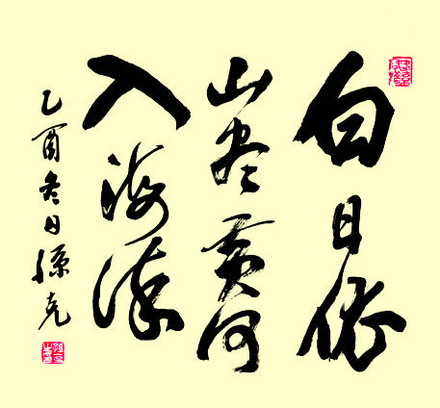 白日依
山尽黄河
入海流
乙酉冬日孙克